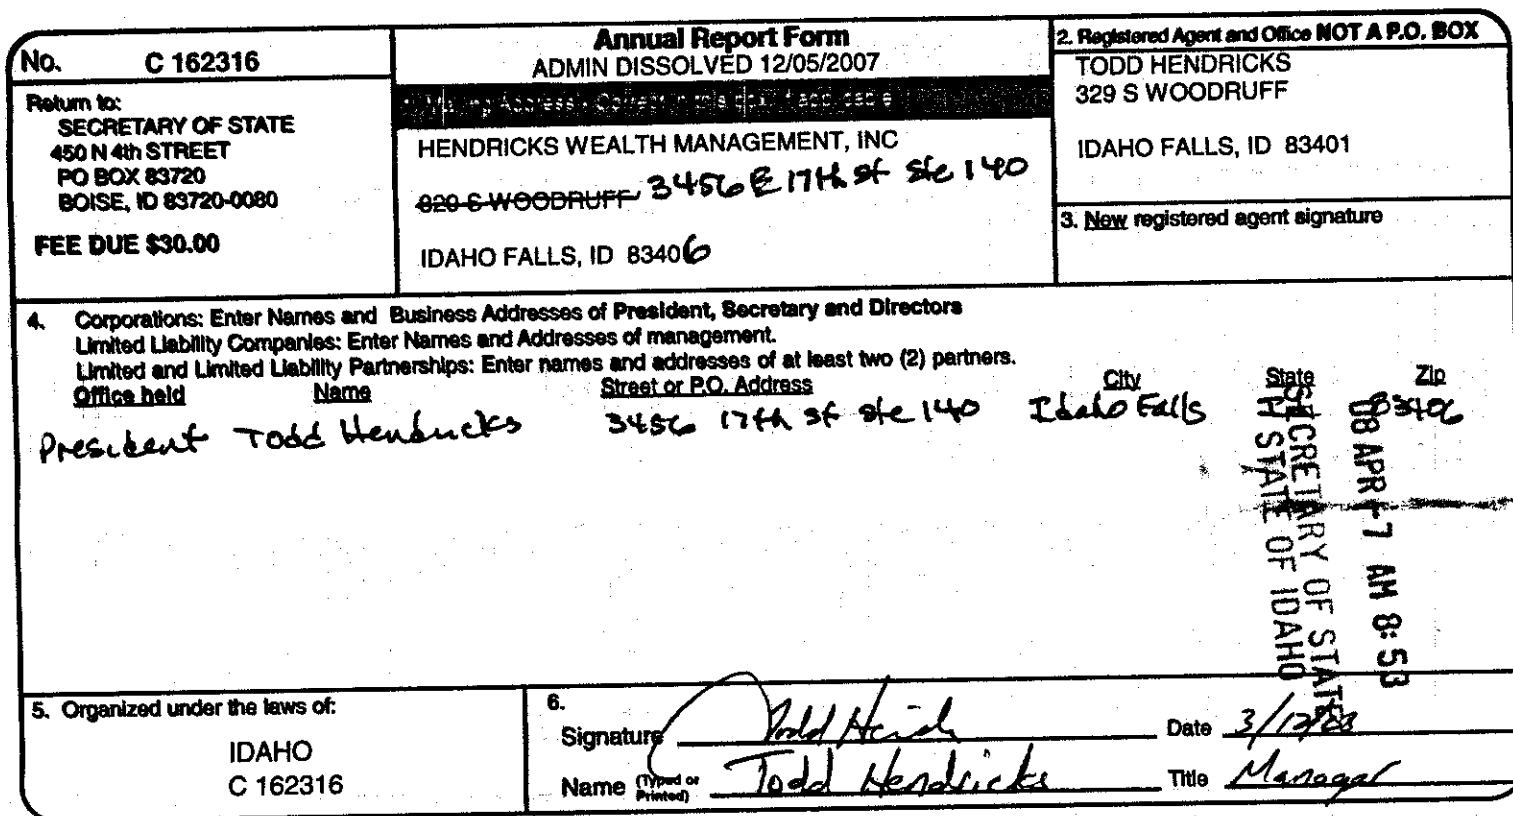 No. C 162316
Return to:
SECRETARY OF STATE
450 N 4th STREET
PO BOX 83720
BOISE, ID 83720-0080
FEE DUE $30.00
Annual Report Form
ADMIN DISSOLVED 12/05/2007
HENDRICKS WEALTH MANAGEMENT, INC
S WOODRUFF 3456 E 17th st ste 140
IDAHO FALLS, ID 83406
2. Registered Agent and Office NOT A P.O. BOX
TODD HENDRICKS
329 S WOODRUFF
IDAHO FALLS, ID 83401
3. New registered agent signature
4. Corporations: Enter Names and Business Addresses of President, Secretary and Directors
Limited Liability Companies: Enter Names and Addresses of management.
Limited and Limited Liability Partnerships: Enter names and addresses of at least two (2) partners.
Office held Name Street or P.O. Address City State Zip
President Todd Hendricks 3456 17th st ste 140 Idaho Falls 83406
08 APR -7 AM 8:53
SECRETARY OF STATE
STATE OF IDAHO
5. Organized under the laws of:
IDAHO
C 162316
6.
Signature Todd Date 3/12/08
Name (Typed or Printed) Todd Hendricks Title Manager